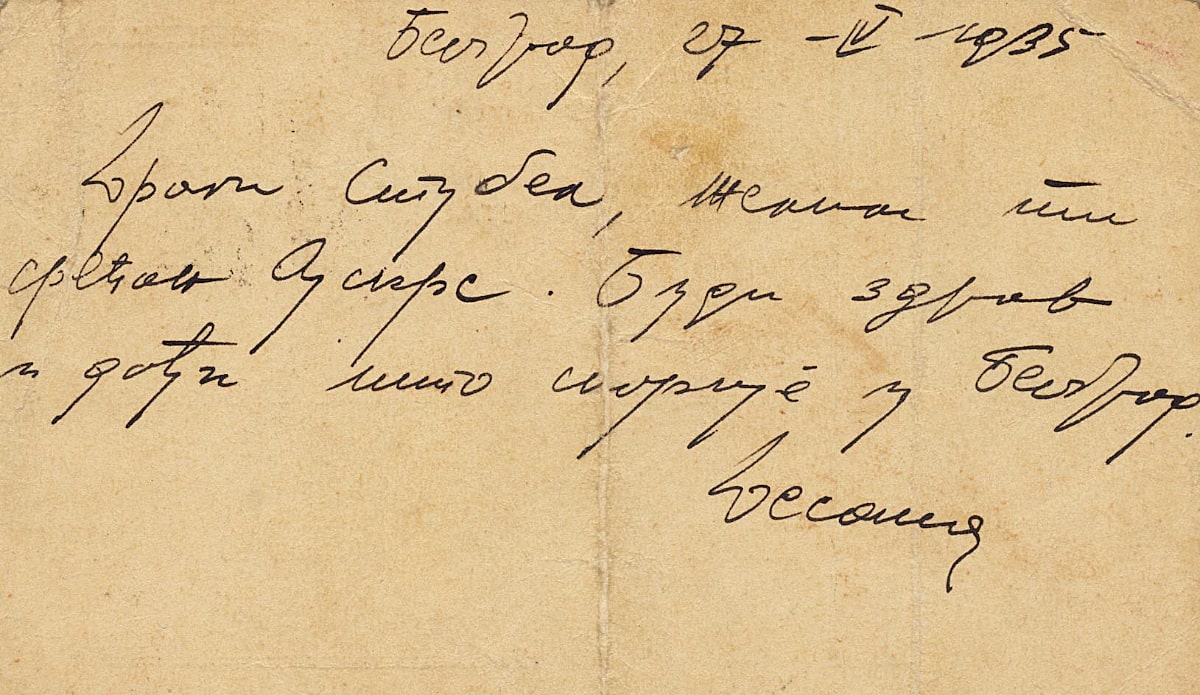 Београд, 27 –IV –1935
Драги Стубел, Желим ти
срећан Ускрс. Буди здрав
и дођи што скорије у Београд.